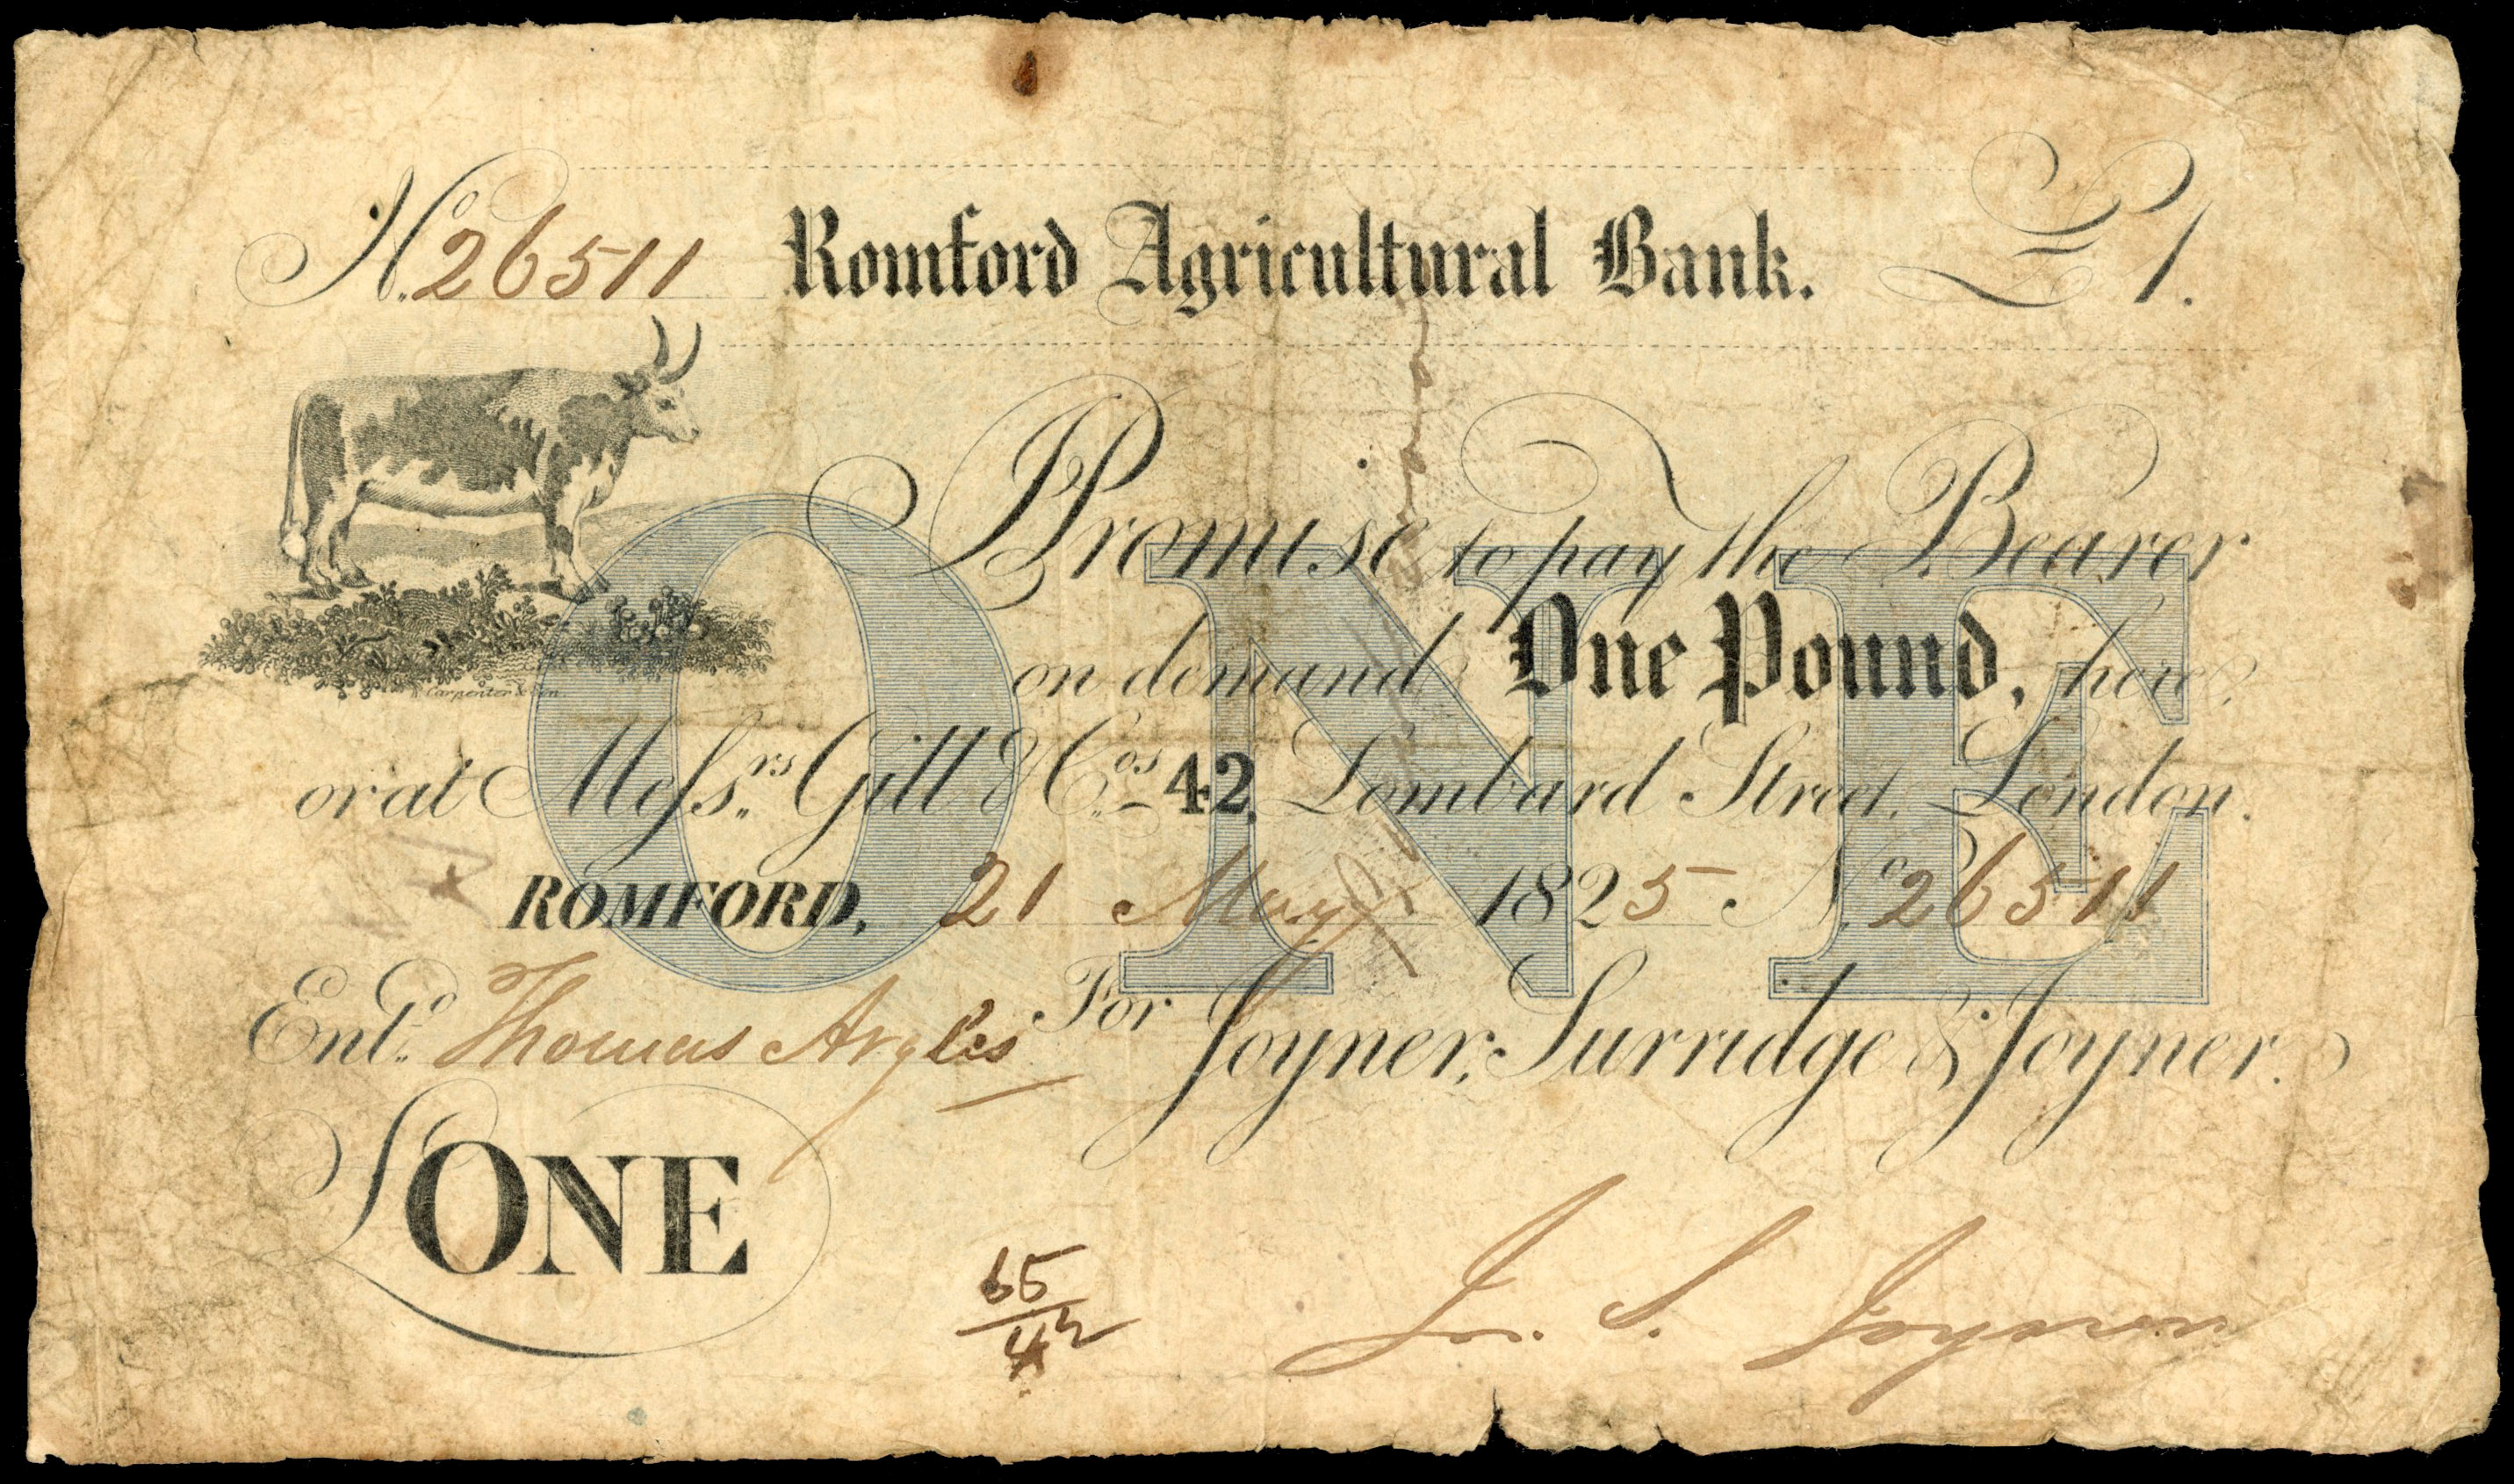 No. 26511 Romford Agricultural Bank. £1.
I Promise to pay the Bearer
on demand One Pound, here,
or at Messrs. Gill & Cos. 42, Lombard Street, London.
ROMFORD, 21 May 1825 No. 26511
Entd. Thomas Argles For Joyner, Surridge & Joyner.
Carpenter & Son
ONE
ONE
65
42
S. Joyner